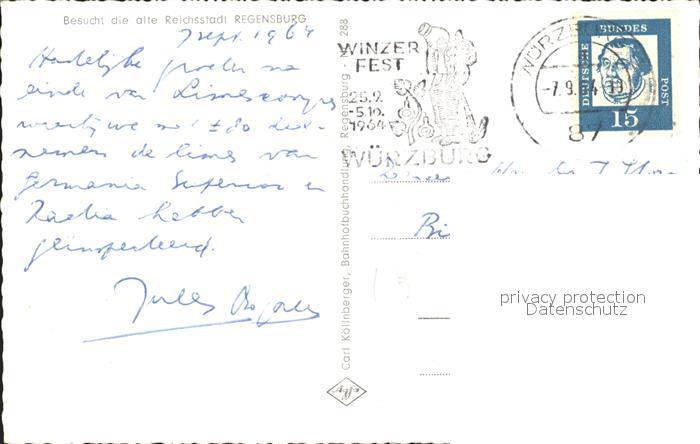 Besucht die alte Reichsstadt REGENSBURG
7 sept. 1964
Hartelijke groeten na
einde van Limescongres
waarbij we met ± 80 deel-
nemers de limes van
Germania Superior en
Raetia hebben
geïnspecteerd.
Jules
Carl Köllnberger, Bahnhofbuchhandlung, Regensburg - Nr. 288
WINZER
FEST
25.9.
-5.10.
1964
WÜRZBURG
WÜRZBURG
-7.9.64-19
87
DEUTSCHE BUNDES POST
15
Bi
privacy protection
Datenschutz